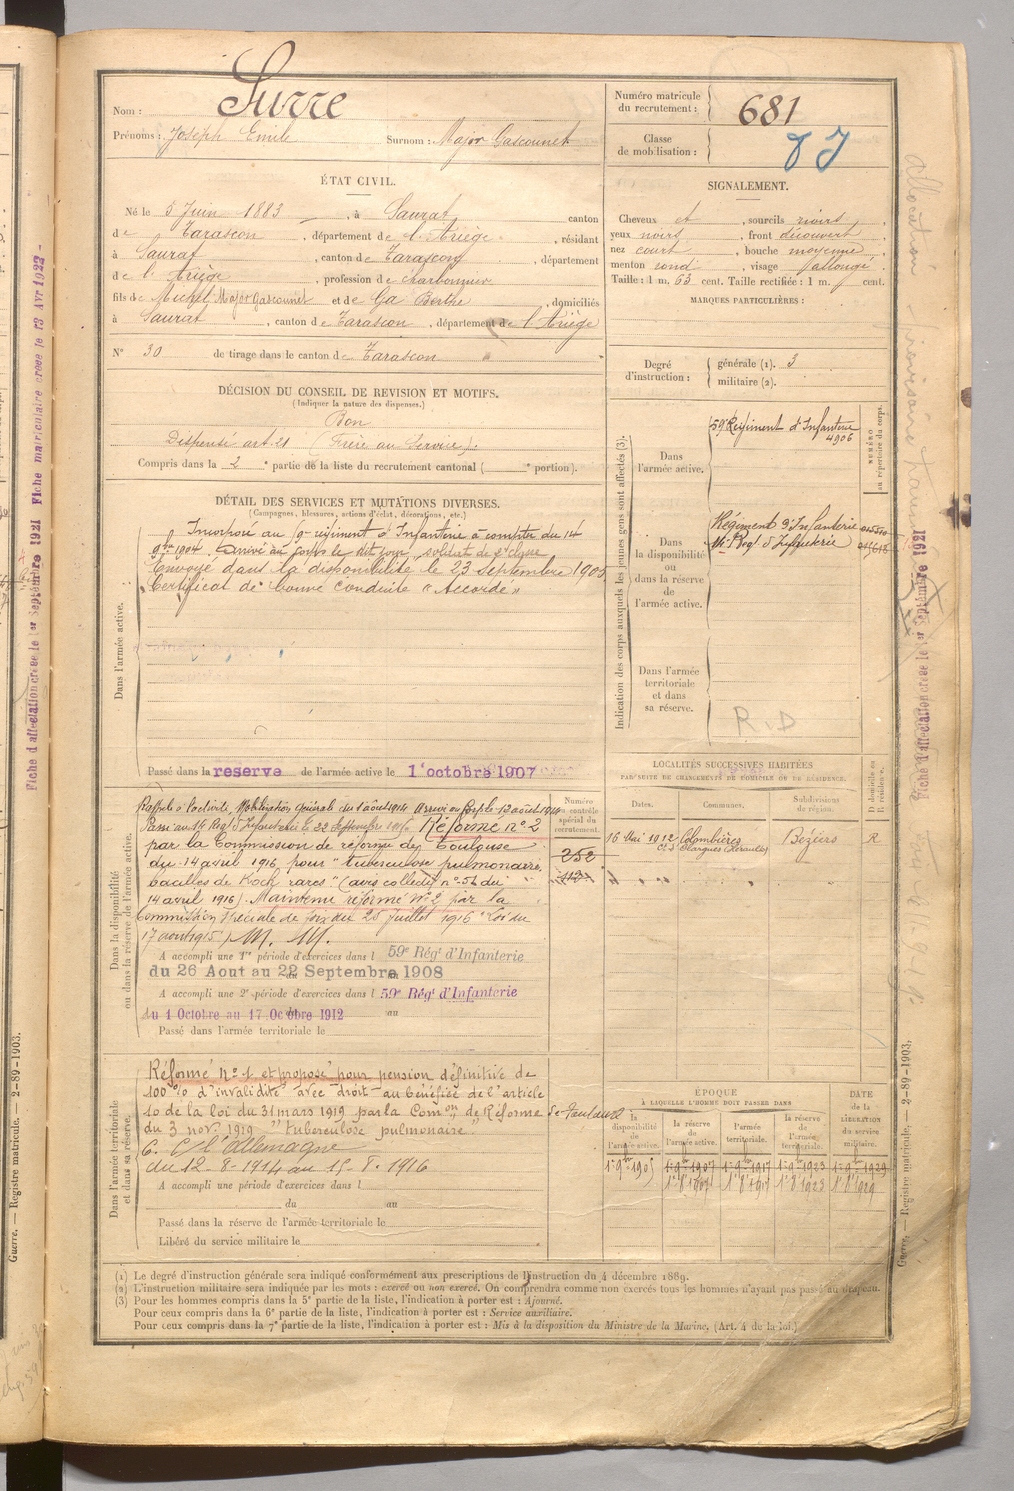 Nom : Surre
Prénoms : Joseph Emile Surnom : Major Gascounet
ÉTAT CIVIL.
Né le 5 Juin 1883, à Saurat canton
de Tarascon, département de l'Ariège, résidant
à Saurat, canton de Tarascon, département
de l'Ariège, profession de charbonnier
fils de Michel Major Gascounet et de Ga Berthe, domiciliés
à Saurat, canton de Tarascon, département de l'Ariège
N° 30 de tirage dans le canton de Tarascon
DÉCISION DU CONSEIL DE REVISION ET MOTIFS.
(Indiquer la nature des dispenses.)
Bon
Dispensé art. 21 (Frère au Service).
Compris dans la 2e partie de la liste du recrutement cantonal ( e portion).
DÉTAIL DES SERVICES ET MUTATIONS DIVERSES.
(Campagnes, blessures, actions d'éclat, décorations, etc.)
Dans l'armée active.
Incorporé au régiment d'Infanterie à compter du 14
9bre 1904. Arrivé au corps le dit jour, soldat de 2e classe
Envoyé dans la disponibilité le 23 septembre 1905
Certificat de bonne conduite "Accordé"
Passé dans la reserve de l'armée active le 1 octobre 1907
Dans la disponibilité
ou dans la réserve de l'armée active.
Rappelé à l'activité Mobilisation Générale du 1 août 1914 arrivé au corps le 12 août 1914
Passé au 14 Régt d'Infanterie le 22 Septembre 1915 Réformé n° 2
par la Commission de réforme de Toulouse
du 14 avril 1916 pour "tuberculose pulmonaire,
bacilles de Koch rares" (avis collectif n° 56 du
14 avril 1916) Maintenu réformé N° 2 par la
Commission Spéciale de Foix du 25 juillet 1916 (Loi du
17 août 1915) M. M.
A accompli une 1re période d'exercices dans l 59e Régt d'Infanterie
du 26 Aout au 22 Septembre 1908
A accompli une 2e période d'exercices dans l 59e Régt d'Infanterie
du 1 Octobre au 17 Octobre 1912 au
Passé dans l'armée territoriale le
Dans l'armée territoriale
et dans sa réserve.
Réformé N° 1 et proposé pour pension définitive de
100 % d'invalidité avec droit au bénéfice de l'article
10 de la loi du 31 mars 1919 par la Comon de Réforme de Toulouse
du 3 nov. 1919 "tuberculose pulmonaire"
C. C/ l'Allemagne
du 12-8-1914 au 15-8-1916
A accompli une période d'exercices dans l
du au
Passé dans la réserve de l'armée territoriale le
Libéré du service militaire le
Numéro matricule
du recrutement : 681
Classe
de mobilisation :
SIGNALEMENT.
Cheveux et, sourcils noirs,
yeux noirs, front découvert,
nez court, bouche moyenne,
menton rond, visage allongé.
Taille : 1 m. 63 cent. Taille rectifiée : 1 m. cent.
MARQUES PARTICULIÈRES :
Degré
d'instruction :
générale (1). 3
militaire (2).
Indication des corps auxquels les jeunes gens sont affectés (3).
NUMÉRO
au répertoire du corps.
Dans
l'armée active.
59e Régiment d'Infanterie
4906
Dans
la disponibilité
ou
dans la réserve
de
l'armée active.
Régiment d'Infanterie
14e Régt d'Infanterie
Dans l'armée
territoriale
et dans
sa réserve.
R.D
LOCALITÉS SUCCESSIVES HABITÉES
PAR SUITE DE CHANGEMENTS DE DOMICILE OU DE RÉSIDENCE.
D domicile ou
R résidence.
Numéro
du contrôle
spécial du
recrutement.
Dates. Communes. Subdivisions
de région.
252
16 Mai 1912 Colombières Béziers R
ÉPOQUE
À LAQUELLE L'HOMME DOIT PASSER DANS
DATE
de la
LIBÉRATION
du service
militaire.
la
disponibilité
de
l'armée active.
la réserve
de
l'armée active.
l'armée
territoriale.
la réserve
de
l'armée
territoriale.
1er 9bre 1905 1er 9bre 1907 1er 9bre 1917 1er 9bre 1923 1er 9bre 1929
1er 8bre 1907 1er 8bre 1917 1er 8bre 1923 1er 8bre 1929
(1) Le degré d'instruction générale sera indiqué conformément aux prescriptions de l'instruction du 4 décembre 1889.
(2) L'instruction militaire sera indiquée par les mots : exercé ou non exercé. On comprendra comme non exercés tous les hommes n'ayant pas passé au drapeau.
(3) Pour les hommes compris dans la 5e partie de la liste, l'indication à porter est : Ajourné.
Pour ceux compris dans la 6e partie de la liste, l'indication à porter est : Service auxiliaire.
Pour ceux compris dans la 7e partie de la liste, l'indication à porter est : Mis à la disposition du Ministre de la Marine, (Art. 4 de la loi.)
Guerre. — Registre matricule. — 2-89-1903.
Fiche d'affectation créée le 1er Septembre 1921
Fiche d'affectation créée le 1er Septembre 1921 Fiche matriculaire créée le 13 Avr 1922
Guerre. — Registre matricule. — 2-89-1903.